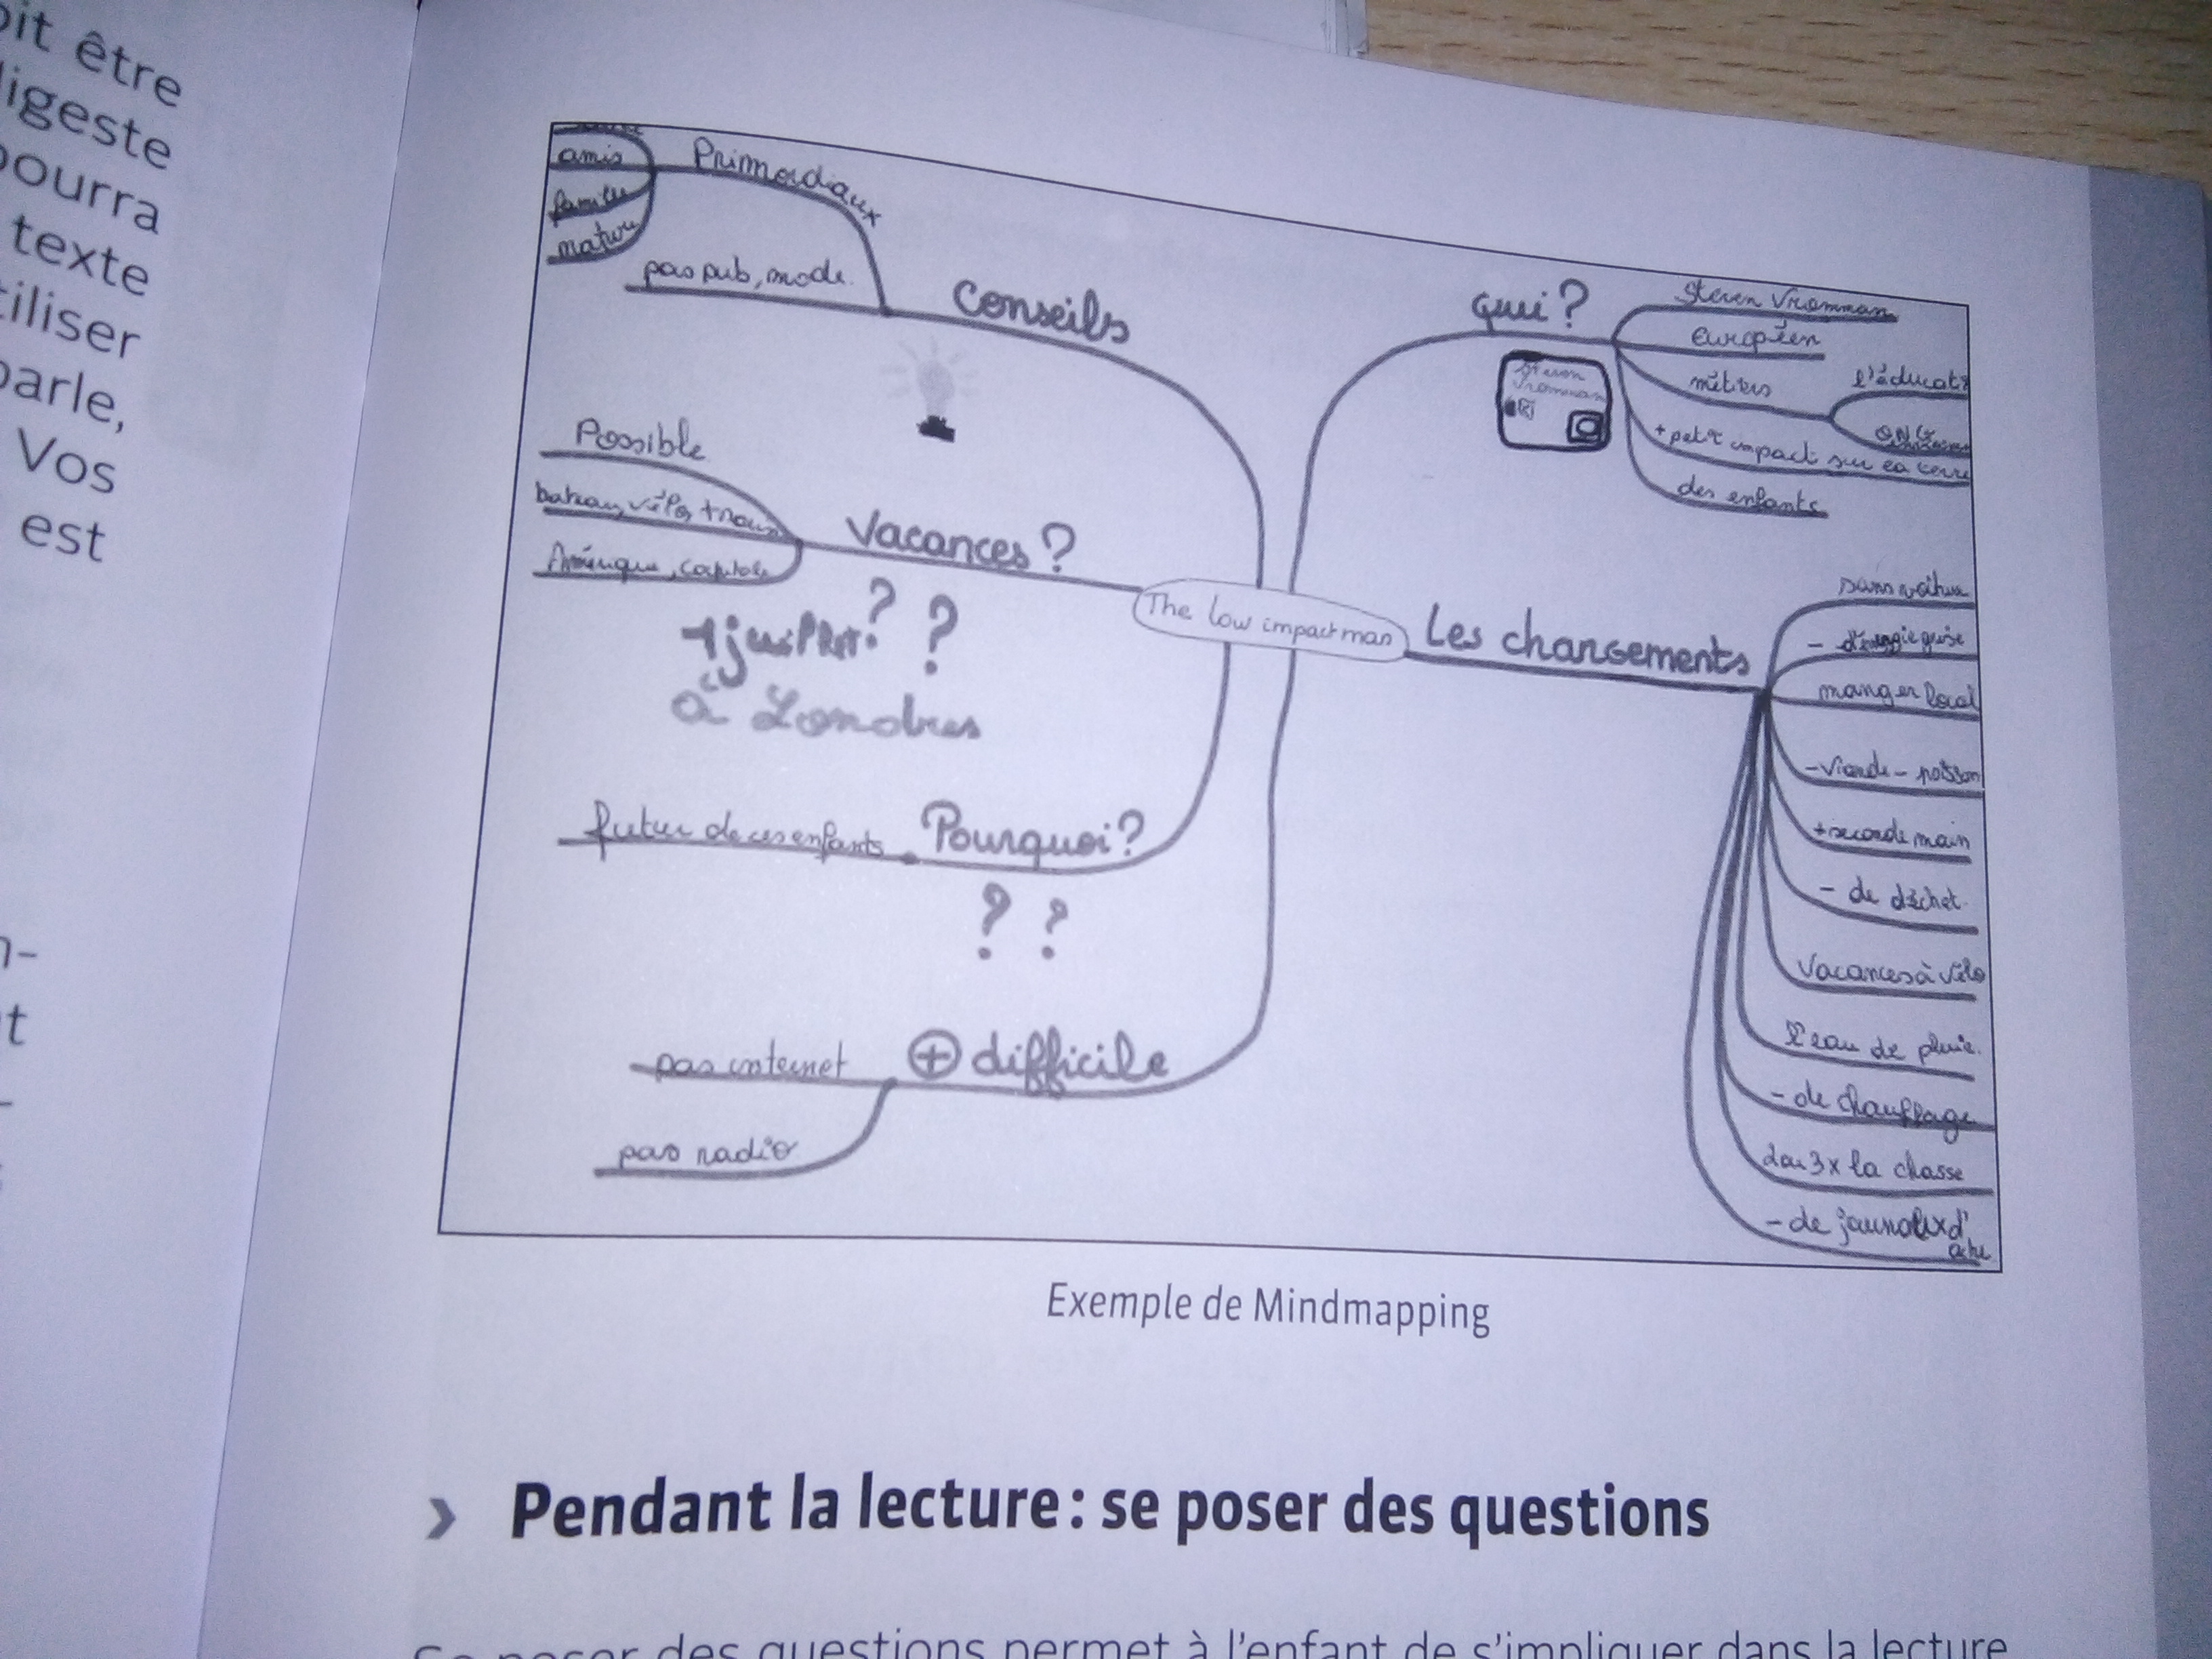 oit être
digeste
pourra
texte
tiliser
parle,
Vos
est
n-
t
amis
famille
nature
Primordiaux
pas pub, mode.
Conseils
Possible
bateau, vélo,
Amérique,
Vacances ?
? ?
à Londres
futur de ces enfants
Pourquoi ?
? ?
pas internet
+ difficile
pas radio
The low impact man
qui ?
Steven Vromman
Steven
Vromman
européen
métiers
l'éducat
+ petit impact sur la terre
des enfants
Les changements
sans voiture
- d'énergie grise
manger local
- viande - poisson
+ seconde main
- de déchet
Vacances à vélo
L'eau de pluie.
- de chauffage
2 ou 3x la chasse
- de jaunaux d'
Exemple de Mindmapping
› Pendant la lecture : se poser des questions
Se poser des questions permet à l'enfant de s'impliquer dans la lecture